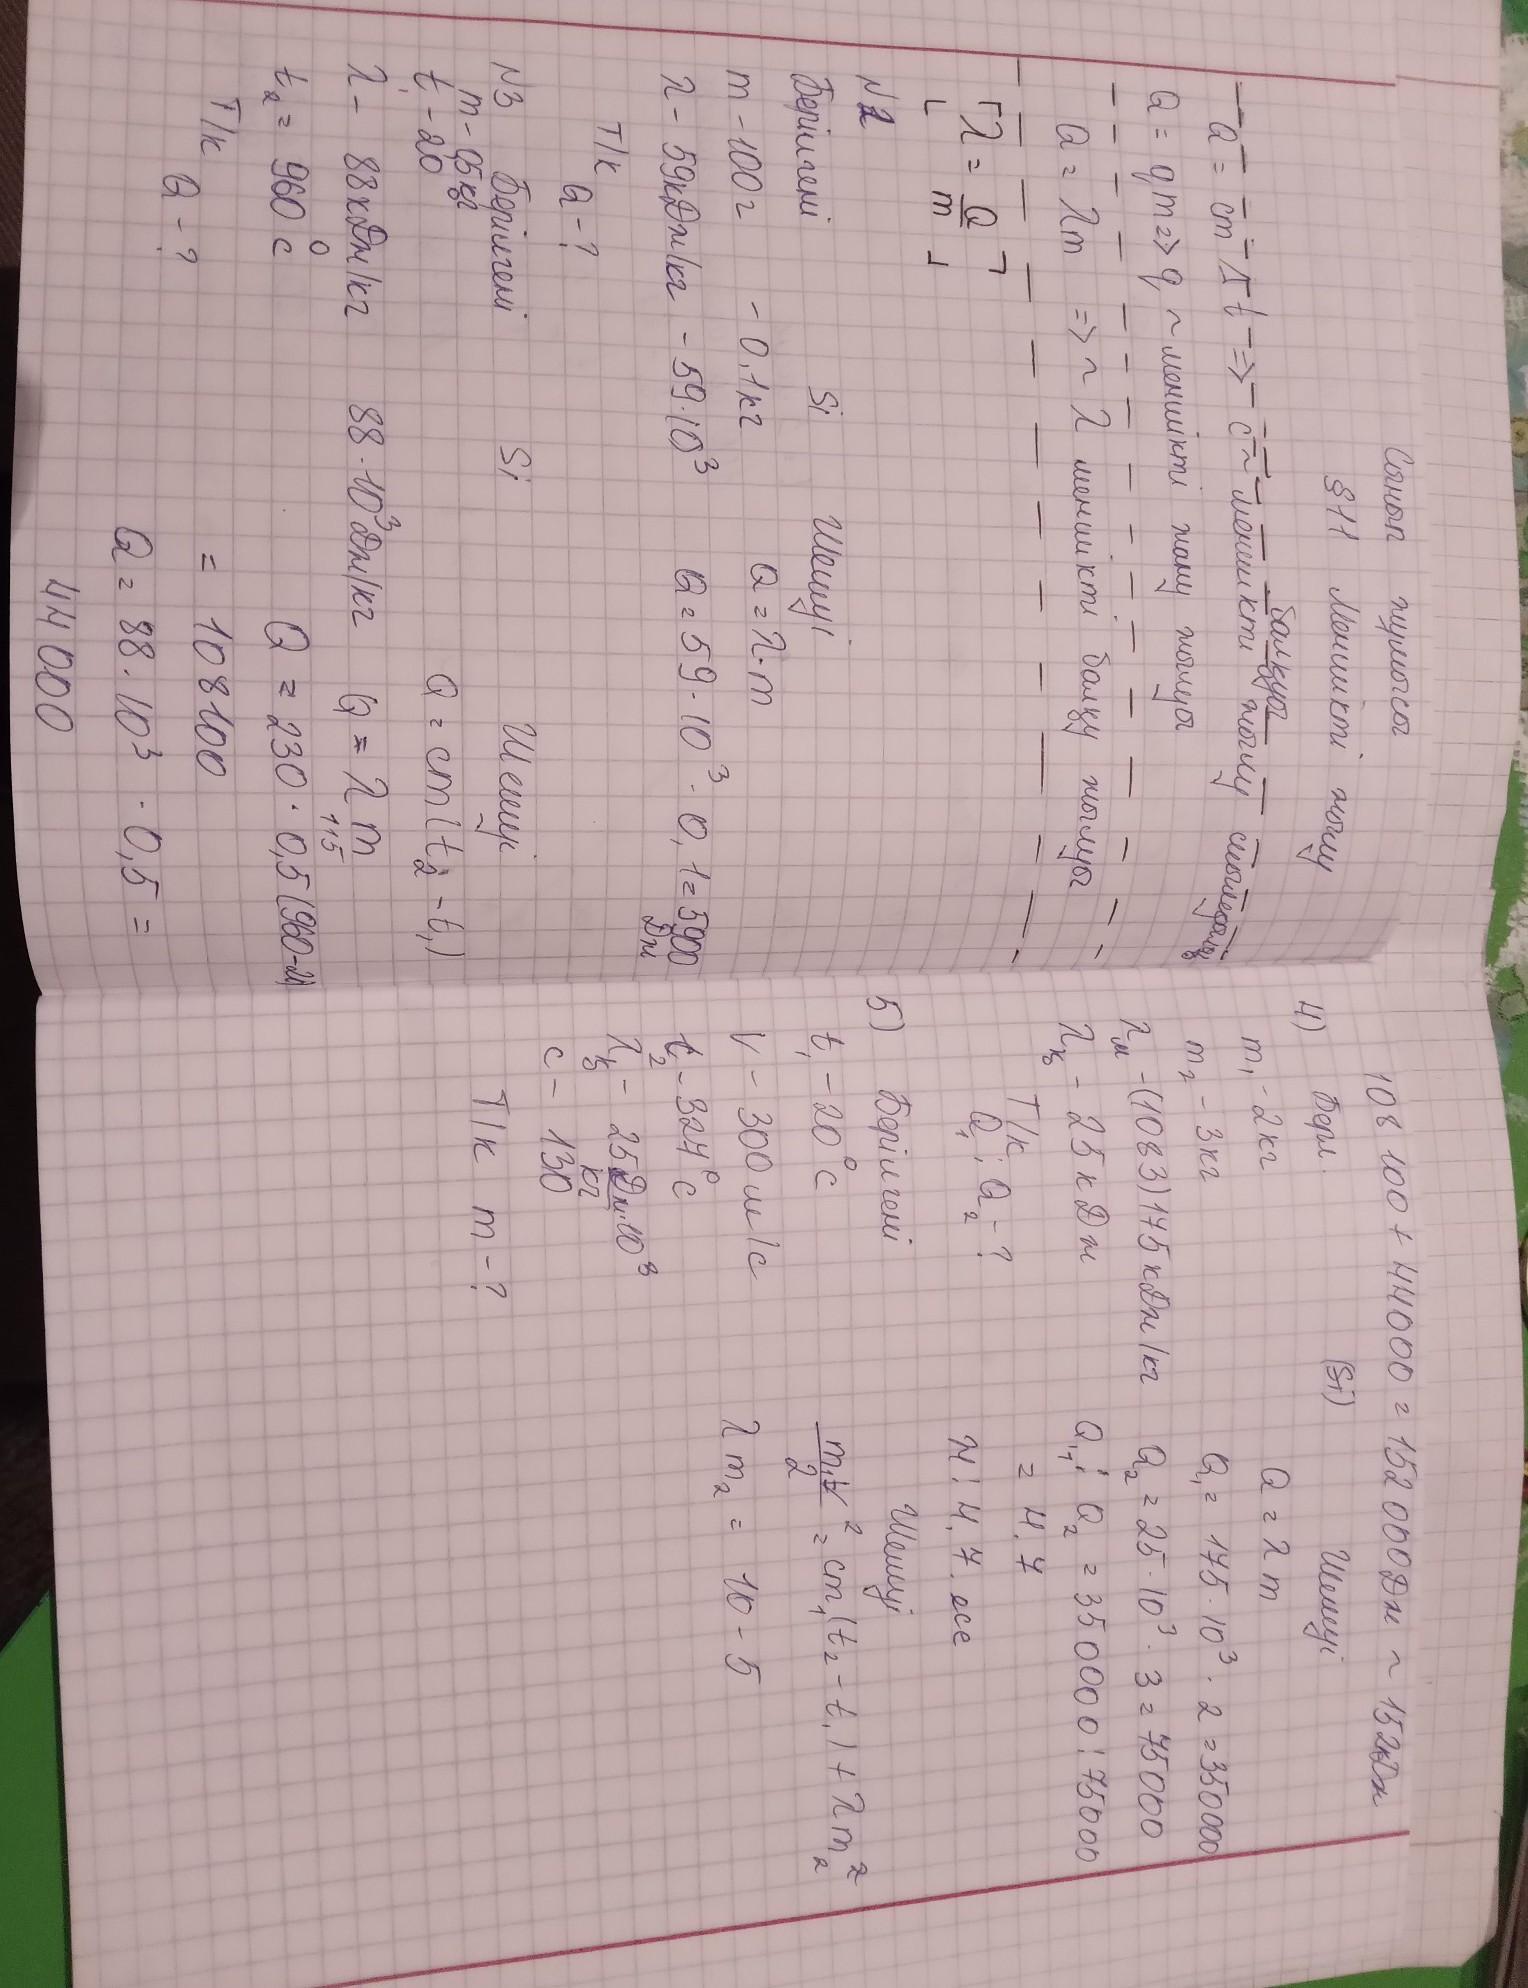 Сынып жұмысы
§11 Меншікті жылу
балқуы
Q = cm Δt => c ~ меншікті жылу сыйымдылық
Q = qm => q ~ меншікті жану жылуы
Q = λm => ~ λ меншікті балқу жылуы
[λ = Q/m]
N2
Берілгені Si Шешуі
m - 100г - 0,1кг Q = λ·m
λ - 59кДж/кг - 59·10³ Q = 59·10³·0,1=5900 Дж
Т/к Q - ?
N3 Берілгені Si Шешуі
m - 0,5кг
t₁ - 20 Q = cm(t₂ - t₁)
λ - 88кДж/кг 88·10³Дж/кг Q = λm
115
t₂ = 960°c Q = 230·0,5(960-20)
Т/к = 108100
Q - ? Q = 88·10³·0,5 =
44000
108 100 + 44000 = 152 000Дж ~ 152кДж
4) Берл. (Si) Шешуі
m₁ - 2кг Q = λm
m₂ - 3кг Q₁ = 175·10³·2 = 350000
λм - (1083)175кДж/кг Q₂ = 25·10³·3 = 75000
λқ - 25кДж Q₁ : Q₂ = 350000 : 75000
Т/к = 4.7
Q₁ : Q₂ - ? Ж: 4,7 есе
5) Берілгені Шешуі
t₁ - 20°c m₁v²/2 = cm₁(t₂ - t₁) + λm₂
V - 300м/с λm₂ = 10 - 5
t₂ - 324°c
λқ - 25Дж·10³
кг
c - 130
Т/к m - ?